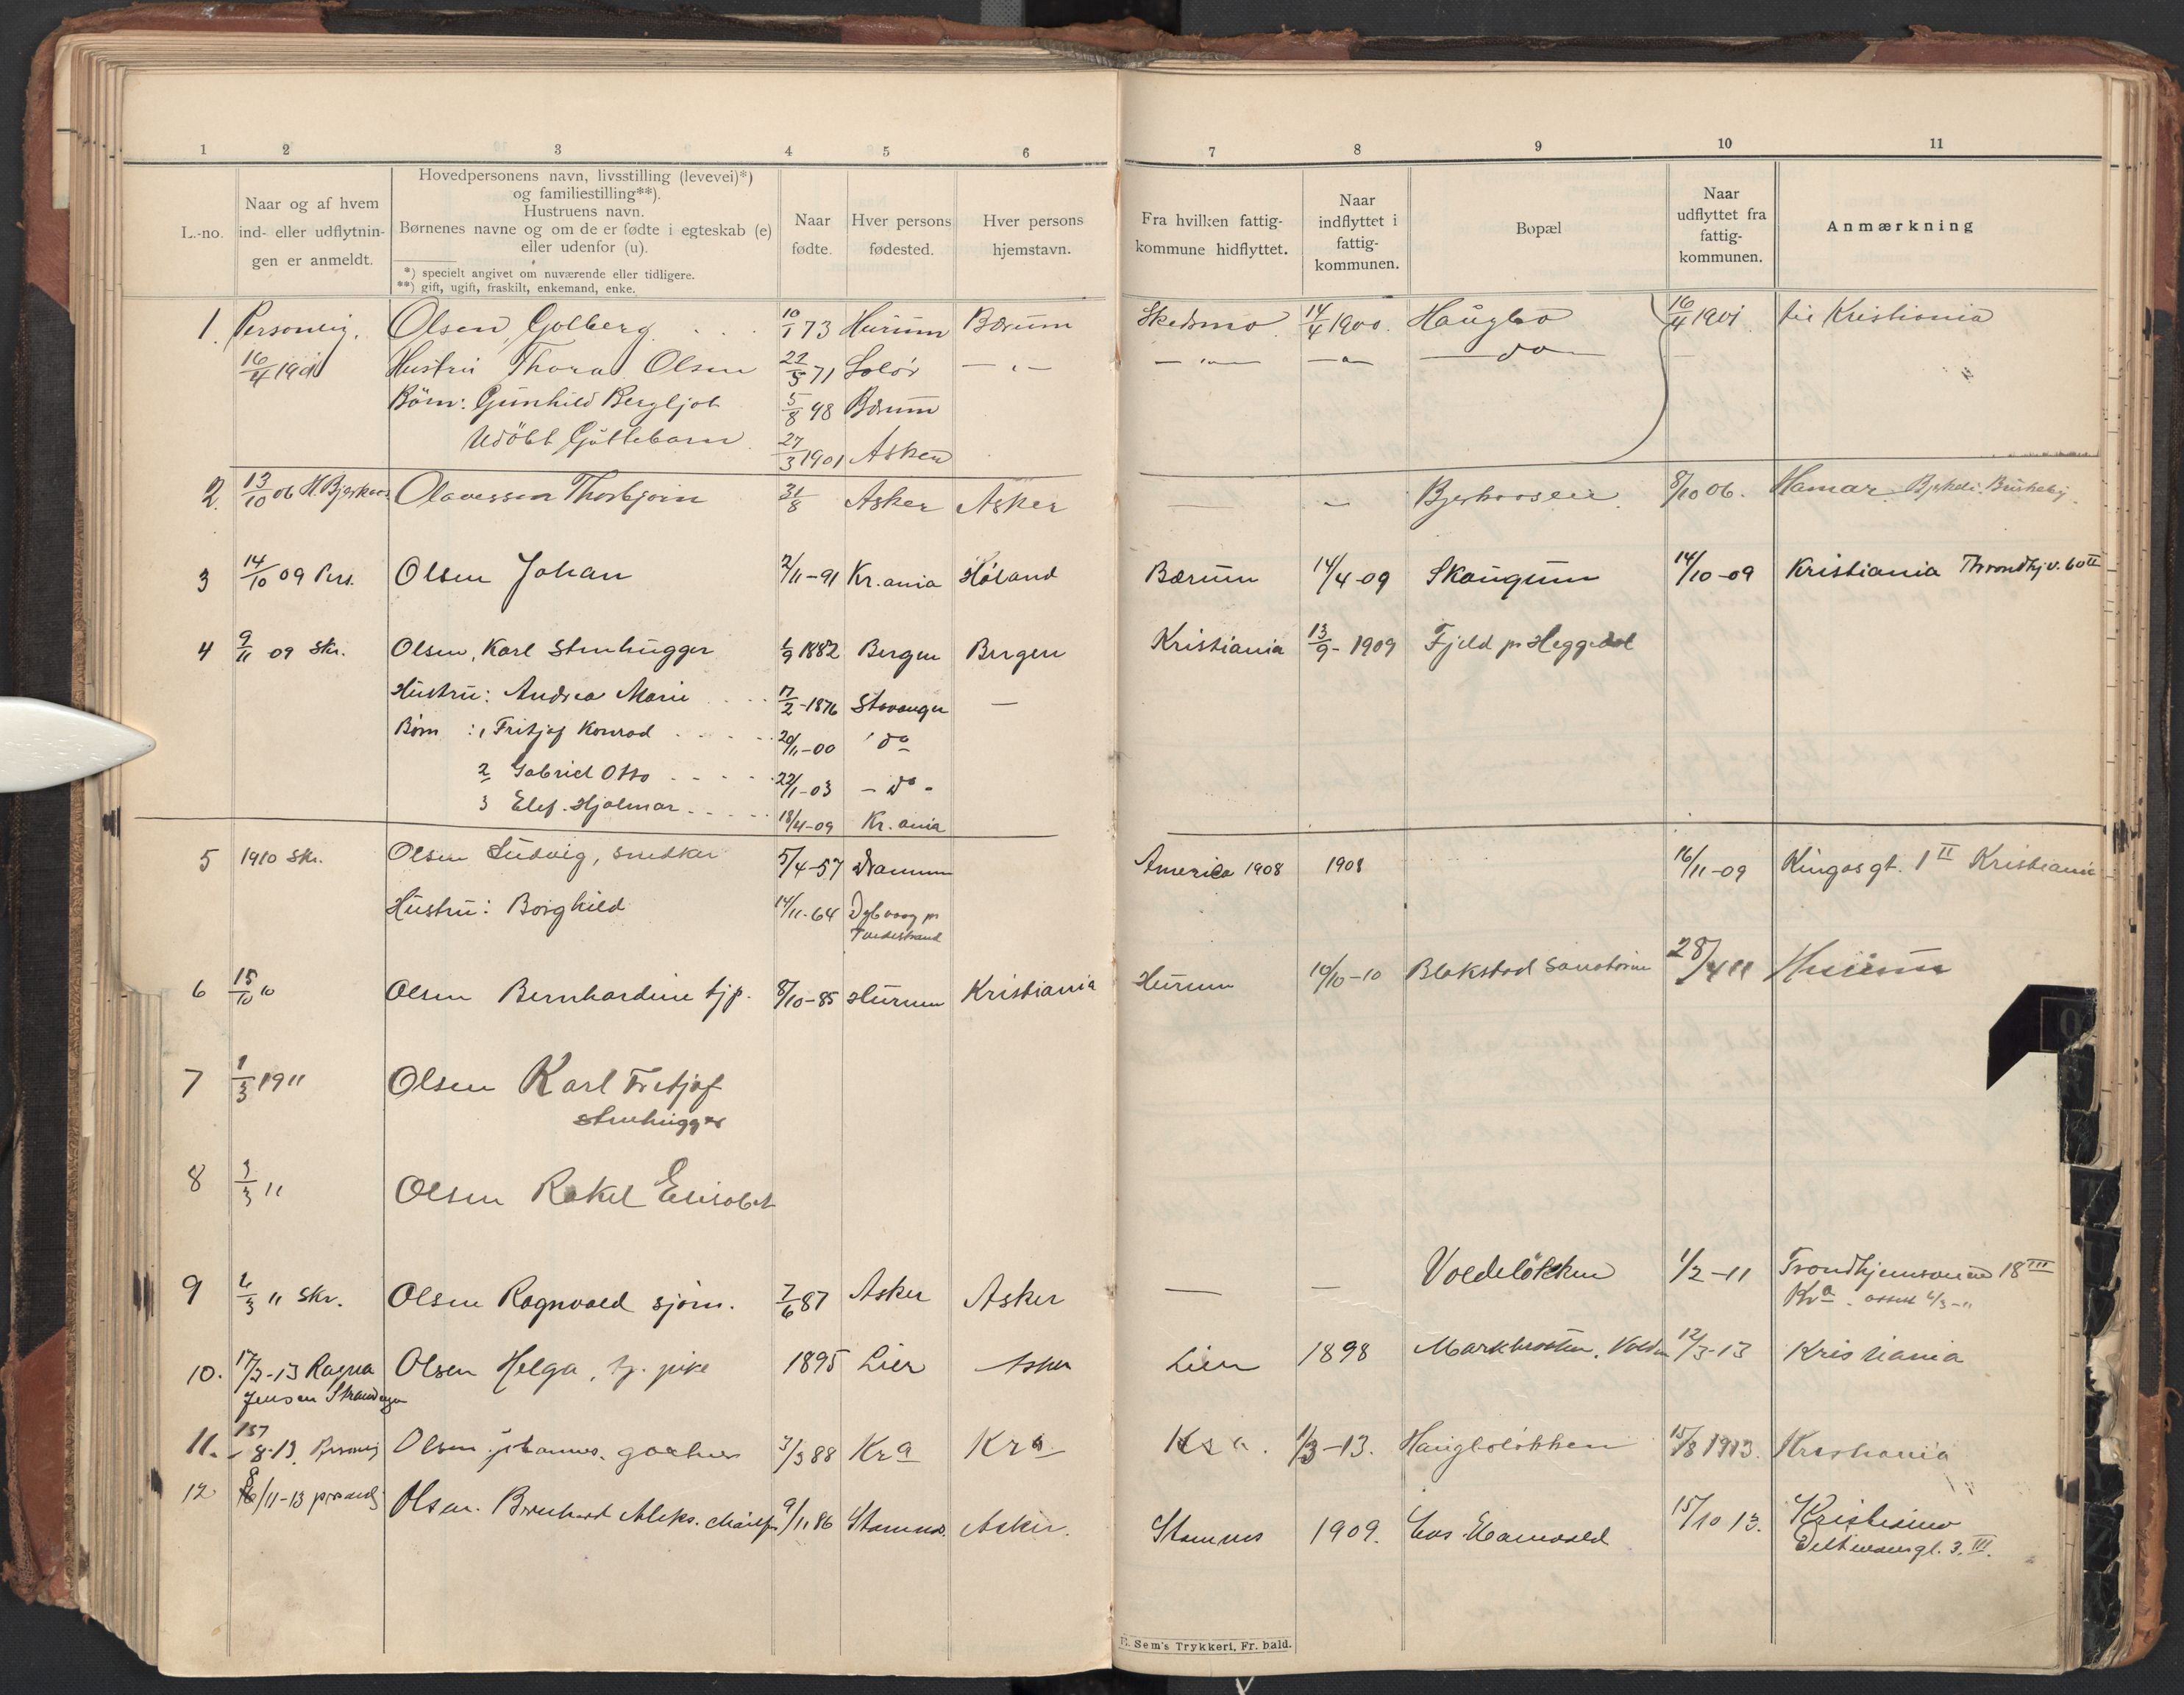 1 2 3 4 5 6 7 8 9 10 11
L.-no.
Naar og af hvem
ind- eller udflytnin-
gen er anmeldt.
Hovedpersonens navn, livsstilling (levevei)*)
og familiestilling**).
Hustruens navn.
Børnenes navne og om de er fødte i egteskab (e)
eller udenfor (u).
*) specielt angivet om nuværende eller tidligere.
**) gift, ugift, fraskilt, enkemand, enke.
Naar
fødte.
Hver persons
fødested.
Hver persons
hjemstavn.
Fra hvilken fattig-
kommune hidflyttet.
Naar
indflyttet i
fattig-
kommunen.
Bopæl
Naar
udflyttet fra
fattig-
kommunen.
Anmærkning
1. Personlig. Olsen, Golberg 10/1 73 Hurum Bærum Skedsmo 14/4 1900. Haugbo 16/4 1901 til Kristiania
16/4 1901 Hustru Thora Olsen 22/5 71 Solør — " — — " — — do —
Børn: Gunhild Bergljot 5/8 98 Bærum
Udöbt Guttebarn 27/3 1901 Asker
2. 13/10 06 Olavessen Thorbjørn 31/8 Asker Asker — — 8/10 06. Hamar
3 14/10 09 Pers. Olsen Johan 2/11-91 Kr.ania Høland Bærum 14/4-09 Skaugum 14/10-09 Kristiania Throndhj.v. 60 II
4 9/11 09 Skr. Olsen, Karl Stenhugger 1/9 1882 Bergen Bergen Kristiania 13/9-1909 Fjeld pr Heggedal
Hustru: Andrea Marie 17/2-1876 Stavanger —
Børn: 1 Fritjof Konrad 20/11-00 do
2 Gabriel Otto 22/1-03 - do -
3 Elef. Hjalmar 18/4-09 Kr.ania
5 1910 Skr. Olsen Ludvig, snedker 5/4-57 Drammen America 1908 1908 16/11-09 Kingosgt. 1 II Kristiania
Hustru: Borghild 14/11-64 Dybvaag pr
Tvedestrand
6 15/10 10 Olsen Bernhardine tjp. 8/10-85 Hurum Kristiania Hurum 10/10-10 Blakstad Sanatorium 28/4 11 Hurum
7 1/3 1911 Olsen Karl Fritjof
stenhugger
8 3/3 11 Olsen Rakel Elisabet
9 11 Skr. Olsen Ragnvald sjøm. 7/6 87 Asker Asker — — Voldeløkken 1/2-11 Trondhjemsveien 18 III
Kra.
10. 17/3-13 Ragna Olsen Helga, tj. pike 1895 Lier Asker Lier 1898 12/3-13 Kristiania
Jensen
11. 8-13. Olsen Johannes. gartner 3/3 88 Kra Kra Kra. 1/3-13. Haugboløkken 15/8 1913. Kristiania
12 /11-13 Olsen. Bernhard Aleks. 9/11 86 Stamnes. Asker. Stamnes 1909. 15/10 13. Kristiania
3. III.
E. Sem's Trykkeri, Fr. hald.